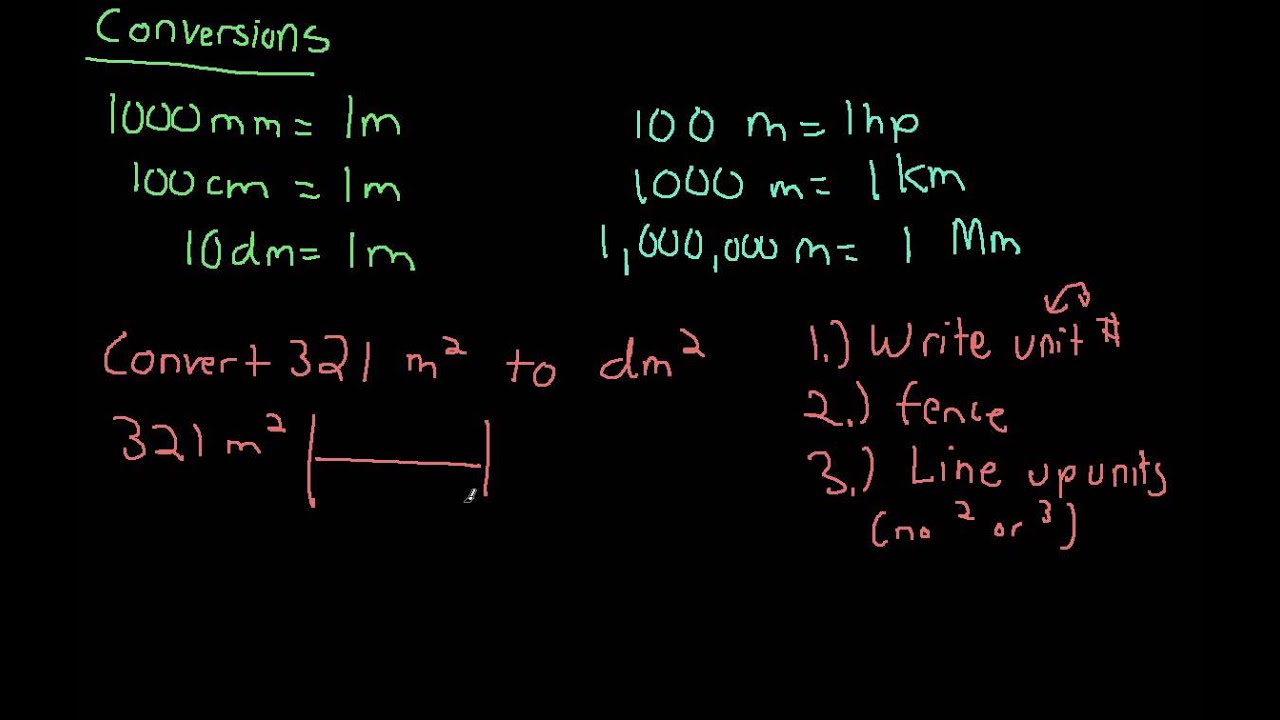 Conversions
1000mm = 1m
100cm = 1m
10dm = 1m
100 m = 1hp
1000 m = 1 km
1,000,000 m = 1 Mm
Convert 321 m² to dm²
321 m²
1.) Write unit #
2.) fence
3.) Line up units
(no ² or ³)